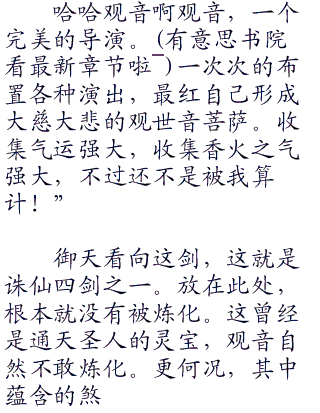 哈哈观音啊观音，一个
完美的导演。(有意思书院
看最新章节啦¯)一次次的布
置各种演出，最红自己形成
大慈大悲的观世音菩萨。收
集气运强大，收集香火之气
强大，不过还不是被我算
计！”
御天看向这剑，这就是
诛仙四剑之一。放在此处，
根本就没有被炼化。这曾经
是通天圣人的灵宝，观音自
然不敢炼化。更何况，其中
蕴含的煞